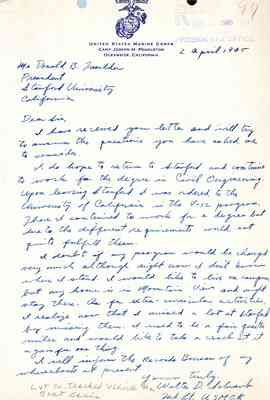 99
UNITED STATES MARINE CORPS
CAMP JOSEPH H. PENDLETON
OCEANSIDE, CALIFORNIA
2 April 1945
Mr Donald B. Tresidder
President
Stanford University
California
Dear Sir,
I have received your letter and will try
to answer the questions you have asked me
to consider.
I do hope to return to Stanford and continue
to work for the degree in Civil Engineering.
Upon leaving Stanford I was ordered to the
University of California in the V-12 program.
There I continued to work for a degree but
due to the different requirements could not
quite fulfill them.
I doubt if my program would be changed
very much although right now I don't know
when I would like to live on campus
but my home is in Mountain View and might
stay there. As for extra-curricular activities,
I realize now that I missed a lot at Stanford
by missing them. I used to be a fair quarter
miler and would like to take a crack at it
again for one thing.
I will inform the Records Bureau of my
whereabouts at present.
Yours truly,
Walter D.
2nd Lt. USMCR